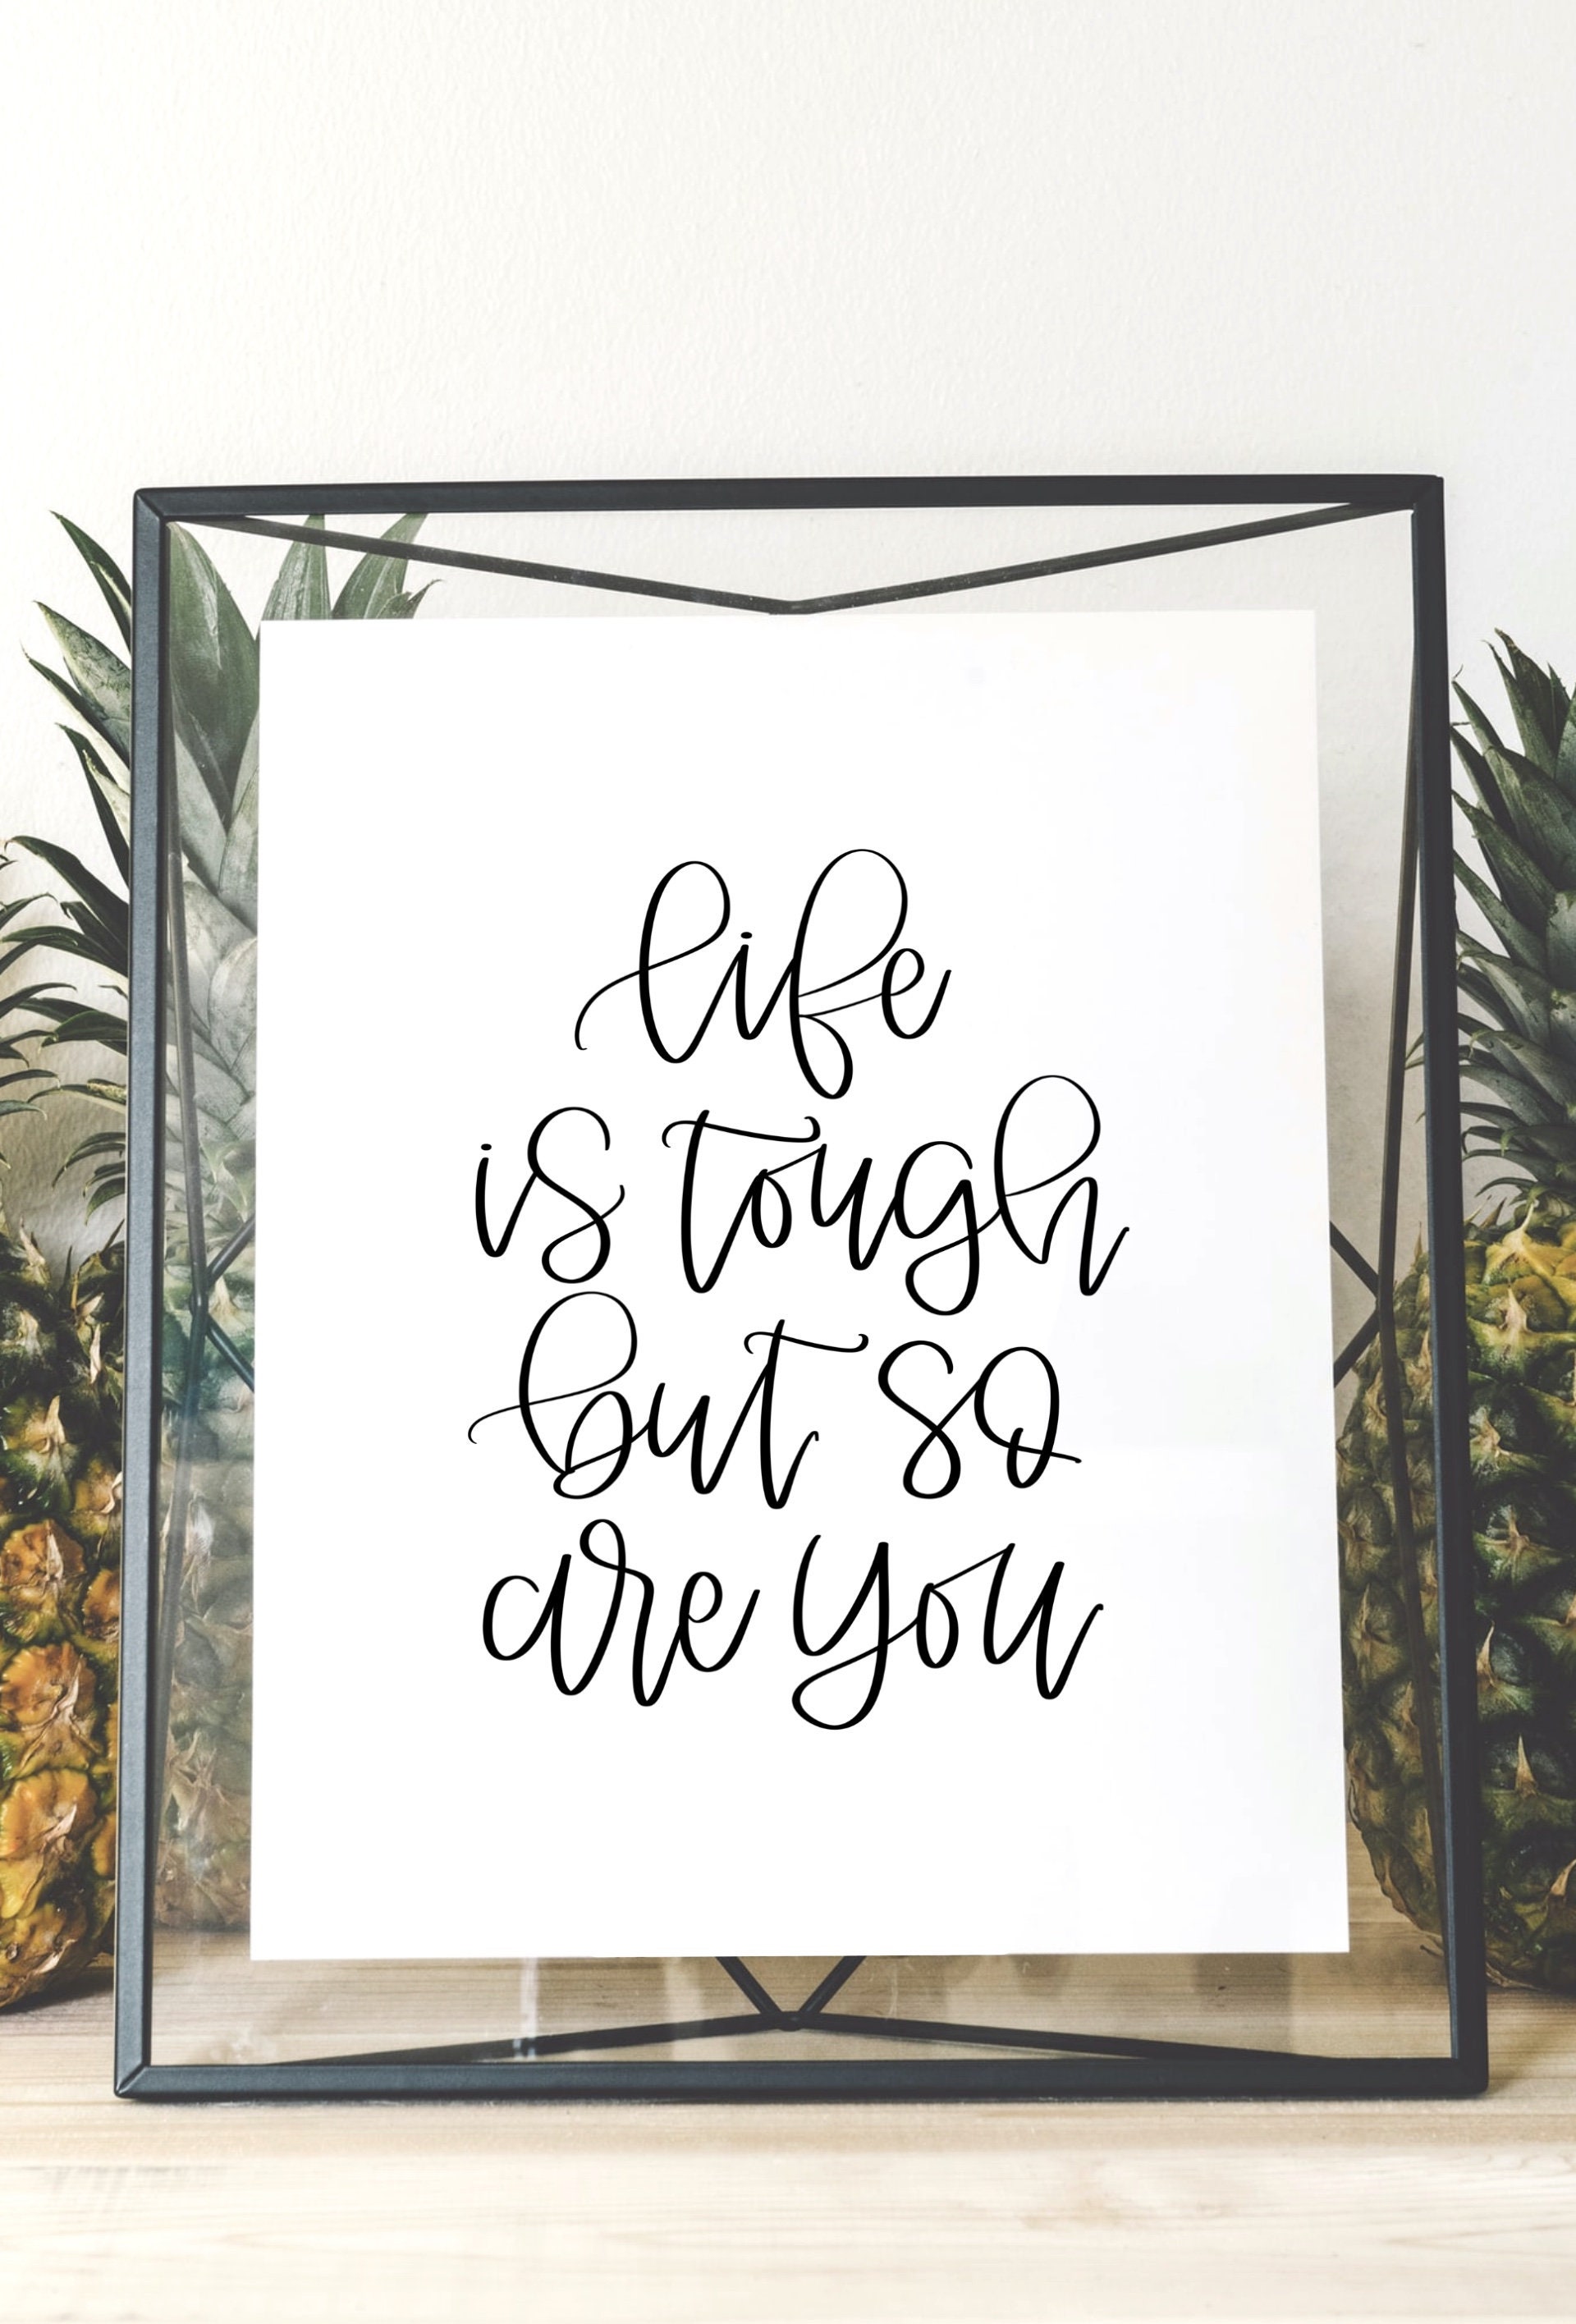 life
is tough
but so
are you